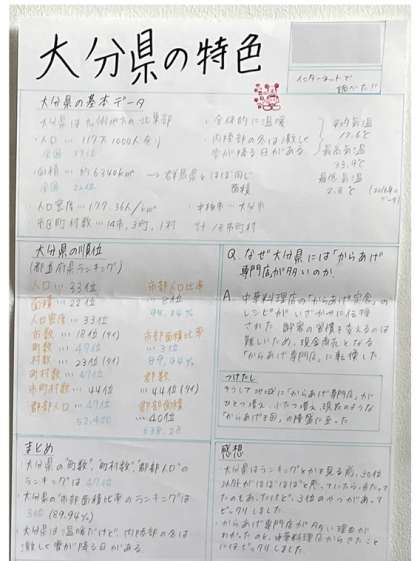 大分県の特色
インターネットで
調べた!!
大分県の基本データ
・大分県は九州地方の北東部
・人口… 117万1000人
全国 33位
・面積… 約6340km²
全国 22位
市区町村数…14市,3町,1村
・全体的に温暖
・内陸部の冬は激しく
雪が降る日がある。
平均気温
最高気温
最低気温
大分県の順位
(都道府県ランキング)
人口… 33位
面積… 22位
人口密度… 33位
市数… 18位(タイ)
町数… 47位
村数… 23位(タイ)
町村数… 47位
市町村数… 44位
郡部人口… 47位
市部人口比率
… 8位
市部面積比率
… 3位
89.94%
郡数
… 44位(タイ)
郡部面積
… 40位
Q. なぜ大分県には「からあげ
専門店」が多いのか。
A. 中華料理店の「からあげ定食」の
レシピが
された
難しいため、現金商売となる
「からあげ専門店」に転換した。
つけたし
そうして地域に「からあげ専門店」が
ひとつ増え、ふたつ増え、現在のような
「からあげ王国」の隆盛に至った
まとめ
・大分県の"町数"、"町村数"、"郡部人口"の
ランキングは 47位
・大分県の"市部面積比率のランキングは
3位 (89.94%)
・大分県は温暖だけど、内陸部の冬は
激しく雪が降る日がある。
感想
・大分県はランキングとかを見る前、30位
以外がほぼほぼと思っていたら、当たって
たのもあったけど、3位のやつがあって
ビックリしました。
・からあげ専門店が多い理由が
わかったのと、中華料理店からきたこと
にはビックリしました。